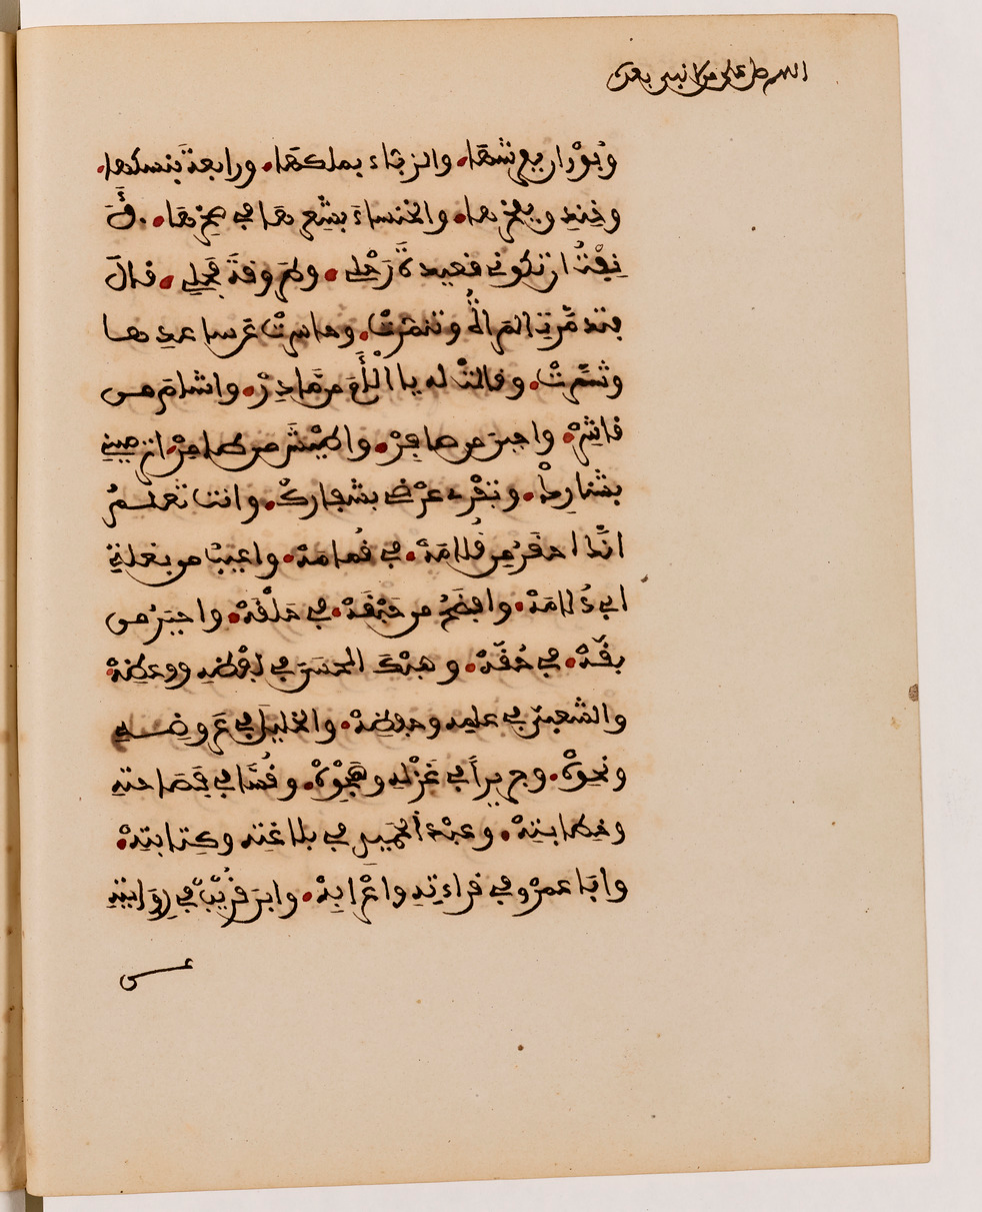 اللهم صل على من لا نبي بعده
وبوران بفرشها. والزباء بملكها. ورابعة بنسكها.
وخندف بفخرها. والخنساء بشعرها في صخرها. لأ
نفت ان تكوني قعيدة رحلي. وطروقة فحلي. قال
فتذمرت المرأة وتنمرت. وحاسرت عن ساعديها
وشمرت. وقالت له يا ألأم من مادر. واشأم من
قاشر. واجبن من صافر. واطيش من طامر. اترميني
بشنارك. وتفري عرضي بشفارك. وانت تعلم
انك احقر من قلامة. في قمامة. واعيب من بغلة
ابي دلامة. وافضح من حبقة. في حلقة. واحير من
بقة. في حقة. وهبك الحسن في لفظه ووعظه.
والشعبي في علمه وحفظه. والخليل في عروضه
ونحوه. وجريرا في غزله وهجوه. وقسا في فصاحته
وخطابته. وعبد الحميد في بلاغته وكتابته.
وابا عمرو في قراءته واعرابه. وابن قريب في روايته
عن